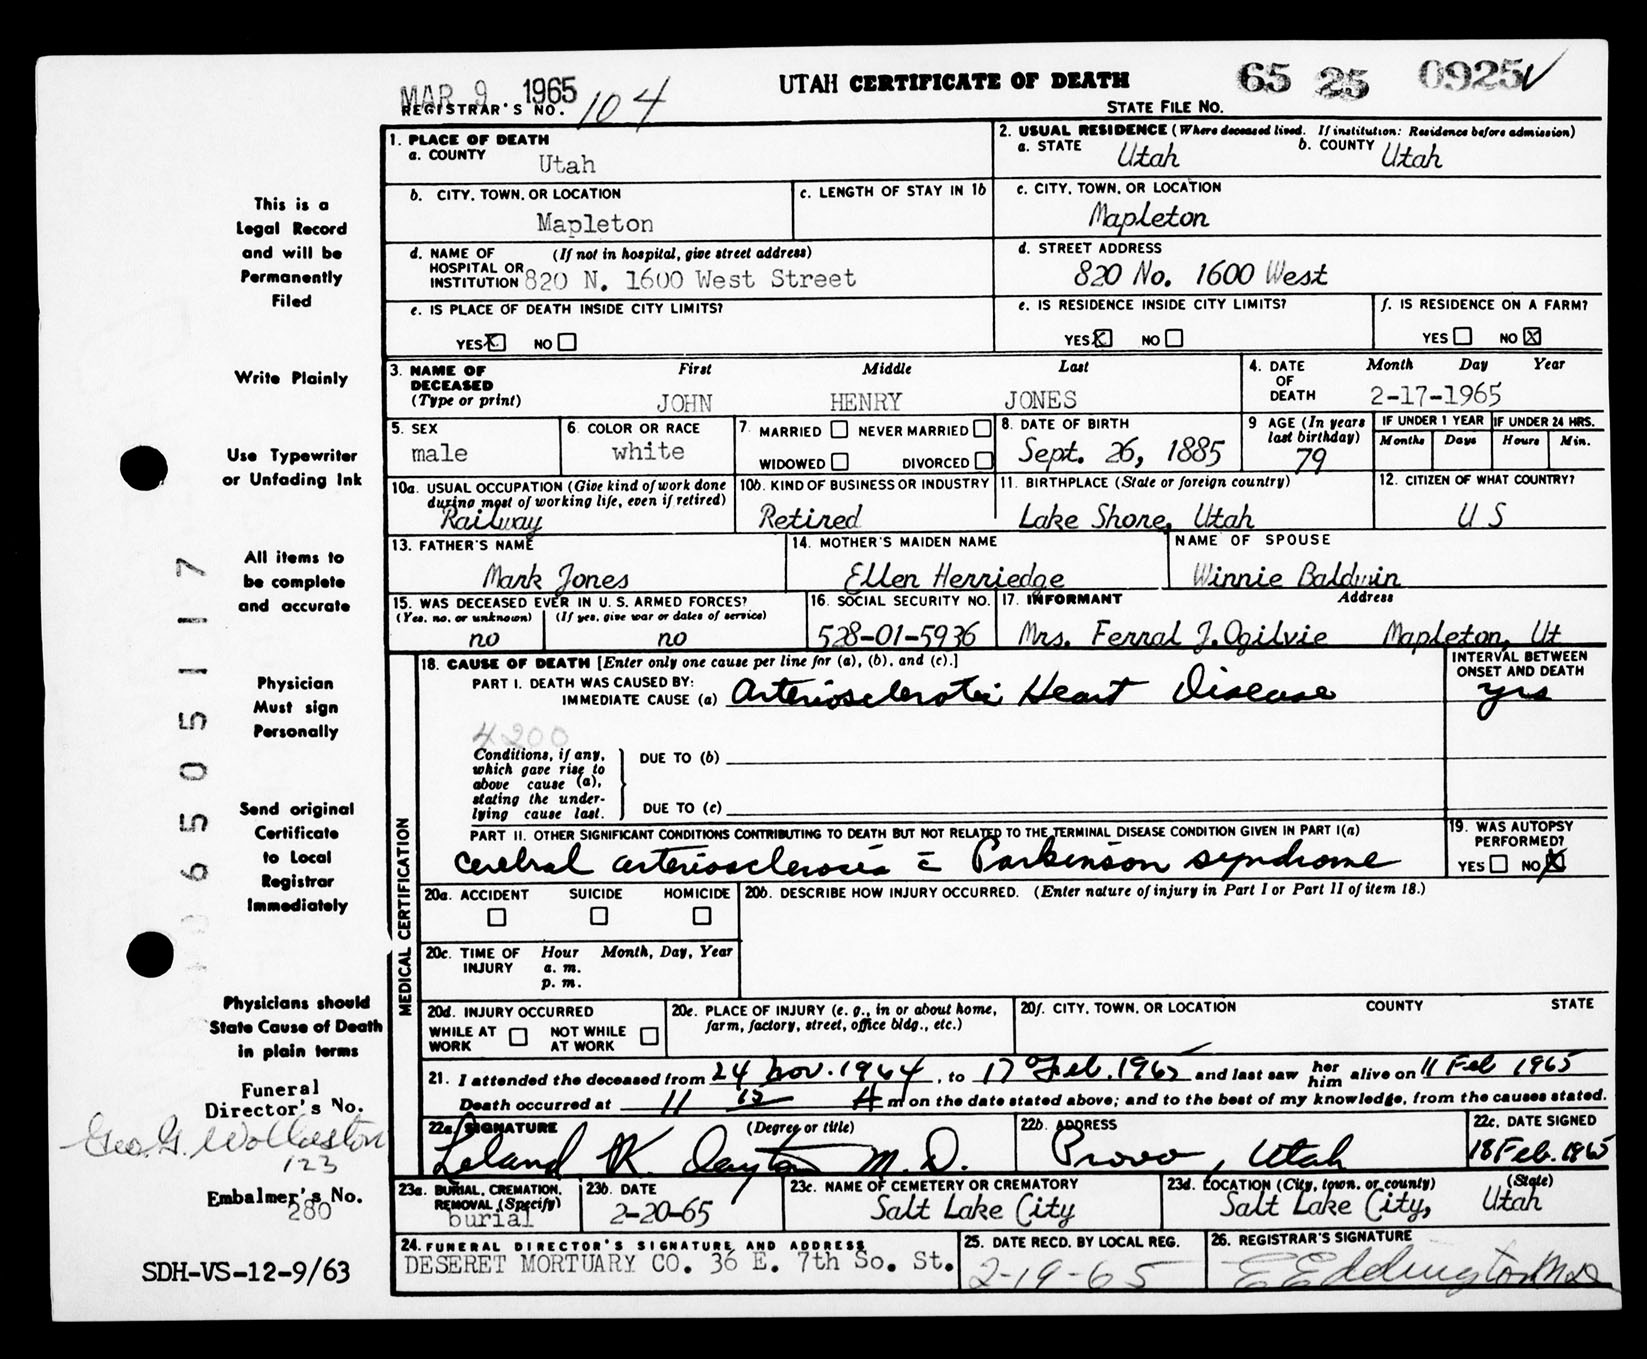 MAR 9 1965
REGISTRAR'S NO. 104
UTAH CERTIFICATE OF DEATH
65 25 0925 ✓
STATE FILE NO.
This is a
Legal Record
and will be
Permanently
Filed
Write Plainly
Use Typewriter
or Unfading Ink
All items to
be complete
and accurate
Physician
Must sign
Personally
Send original
Certificate
to Local
Registrar
Immediately
Physicians should
State Cause of Death
in plain terms
Funeral
Director's No.
Geo. G. Wollaston
123
Embalmer's No.
280
SDH-VS-12-9/63
6 5 0 5 1 1 7
1. PLACE OF DEATH
a. COUNTY
Utah
2. USUAL RESIDENCE (Where deceased lived. If institution: Residence before admission)
a. STATE Utah b. COUNTY Utah
b. CITY, TOWN, OR LOCATION
Mapleton
c. LENGTH OF STAY IN 1b
c. CITY, TOWN, OR LOCATION
Mapleton
d. NAME OF (If not in hospital, give street address)
HOSPITAL OR
INSTITUTION 820 N. 1600 West Street
d. STREET ADDRESS
820 No. 1600 West
e. IS PLACE OF DEATH INSIDE CITY LIMITS?
YES X NO
e. IS RESIDENCE INSIDE CITY LIMITS?
YES X NO
f. IS RESIDENCE ON A FARM?
YES NO X
3. NAME OF
DECEASED
(Type or print)
First Middle Last
JOHN HENRY JONES
4. DATE
OF
DEATH
Month Day Year
2-17-1965
5. SEX
male
6. COLOR OR RACE
white
7. MARRIED NEVER MARRIED
WIDOWED DIVORCED
8. DATE OF BIRTH
Sept. 26, 1885
9 AGE (In years
last birthday)
79
IF UNDER 1 YEAR
Months Days
IF UNDER 24 HRS.
Hours Min.
10a. USUAL OCCUPATION (Give kind of work done
during most of working life, even if retired)
Railway
10b. KIND OF BUSINESS OR INDUSTRY
Retired
11. BIRTHPLACE (State or foreign country)
Lake Shore, Utah
12. CITIZEN OF WHAT COUNTRY?
U S
13. FATHER'S NAME
Mark Jones
14. MOTHER'S MAIDEN NAME
Ellen Herriedge
NAME OF SPOUSE
Winnie Baldwin
15. WAS DECEASED EVER IN U.S. ARMED FORCES?
(Yes, no, or unknown) (If yes, give war or dates of service)
no no
16. SOCIAL SECURITY NO.
528-01-5936
17. INFORMANT Address
Mrs. Ferral J. Ogilvie Mapleton, Ut
MEDICAL CERTIFICATION
18. CAUSE OF DEATH [Enter only one cause per line for (a), (b), and (c).]
PART I. DEATH WAS CAUSED BY:
IMMEDIATE CAUSE (a) Arteriosclerotic Heart Disease
INTERVAL BETWEEN
ONSET AND DEATH
yrs
4200
Conditions, if any,
which gave rise to
above cause (a),
stating the under-
lying cause last.
DUE TO (b)
DUE TO (c)
PART II. OTHER SIGNIFICANT CONDITIONS CONTRIBUTING TO DEATH BUT NOT RELATED TO THE TERMINAL DISEASE CONDITION GIVEN IN PART I(a)
Cerebral arteriosclerosis c̄ Parkinson syndrome
19. WAS AUTOPSY
PERFORMED?
YES NO X
20a. ACCIDENT SUICIDE HOMICIDE
20b. DESCRIBE HOW INJURY OCCURRED. (Enter nature of injury in Part I or Part II of item 18.)
20c. TIME OF
INJURY
Hour Month, Day, Year
a. m.
p. m.
20d. INJURY OCCURRED
WHILE AT
WORK
NOT WHILE
AT WORK
20e. PLACE OF INJURY (e. g., in or about home,
farm, factory, street, office bldg., etc.)
20f. CITY, TOWN, OR LOCATION COUNTY STATE
21. I attended the deceased from 24 Nov. 1964, to 17 Feb. 1965 and last saw her him alive on 11 Feb 1965
Death occurred at 11 15 A m on the date stated above; and to the best of my knowledge, from the causes stated.
22a. SIGNATURE (Degree or title)
Leland K. Dayton M.D.
22b. ADDRESS
Provo, Utah
22c. DATE SIGNED
18 Feb. 1965
23a. BURIAL, CREMATION,
REMOVAL (Specify)
burial
23b. DATE
2-20-65
23c. NAME OF CEMETERY OR CREMATORY
Salt Lake City
23d. LOCATION (City, town, or county) (State)
Salt Lake City, Utah
24. FUNERAL DIRECTOR'S SIGNATURE AND ADDRESS
DESERET MORTUARY CO. 36 E. 7th So. St.
25. DATE RECD. BY LOCAL REG.
2-19-65
26. REGISTRAR'S SIGNATURE
E Eddington MD